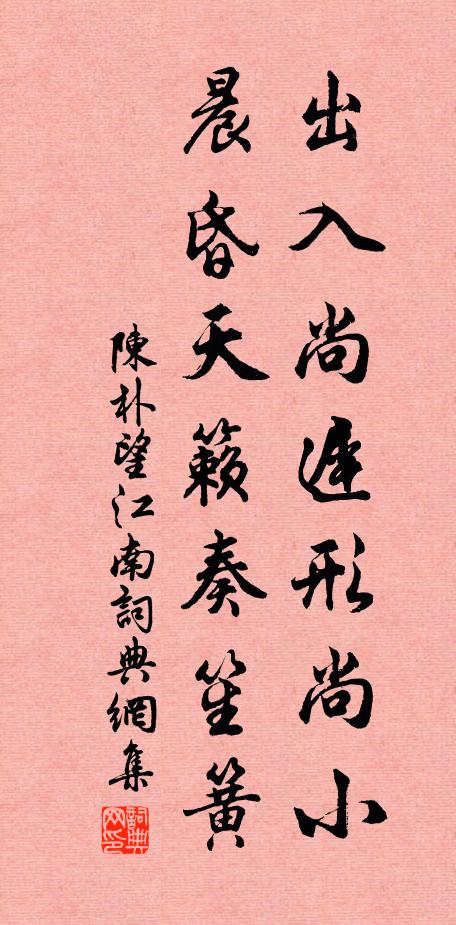 出入尚遲形尚小
晨昏天籟奏笙簧
陳朴望江南詞典網集
詞典网印